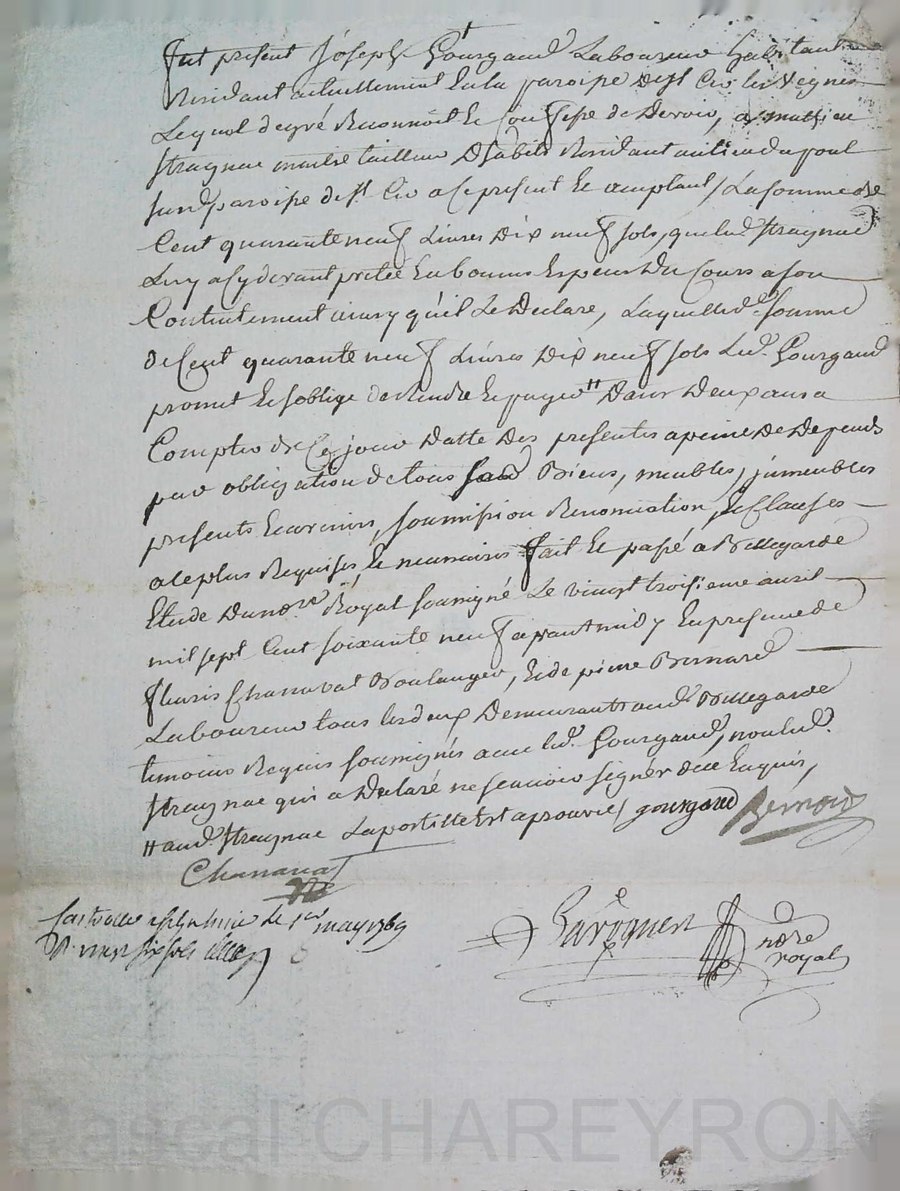 fut present Joseph Gourgaud Laboureur habitant
Residant actuellement en la paroisse de st Cir les vignes
Lequel de gré Reconnoit et Confesse de devoir, a mathieu
stragnac maitre tailleur d'habits Residant au lieu du pont
susd paroisse de st Cir a ce present et acceptant / La somme de
Cent quarante neuf Livres dix neuf sols, que led stragnac
Luy a cy devant pretée en bonnes Especes du Cours a son
Contentement ainsy qu'il Le declare, Laquelle de somme
de Cent quarante neuf Livres dix neuf sols Led. Gourgaud
promet et soblige de Rendre et payer # dans deux ans a
Compter de Ce jour datte des presentes a peine de depends
par obligation de tous ses Biens, meubles, jmeubles
presents Et avenirs, soumission Renonciation, et Clauses
a ce plus Requises et necessaires fait et passé a Bellegarde
Etude du nore Royal soussigné Le vingt troisieme avril
mil sept Cent soixante neuf apprant midy En presence de
fleuris Chanavat Boulanger, et de pierre Bernard
Laboureur tous les deux demeurants aud. Bellegarde
temoins Requis soussignés avec led. Gourgaud, non led.
stragnac qui a declaré ne scavoir signér de ce Enquis,
# aud. stragnac La postille Est aprouvée / gourgaud Bernard
Chanavat
le 1er may 1769
six sols
nore
royal
Pascal CHAREYRON